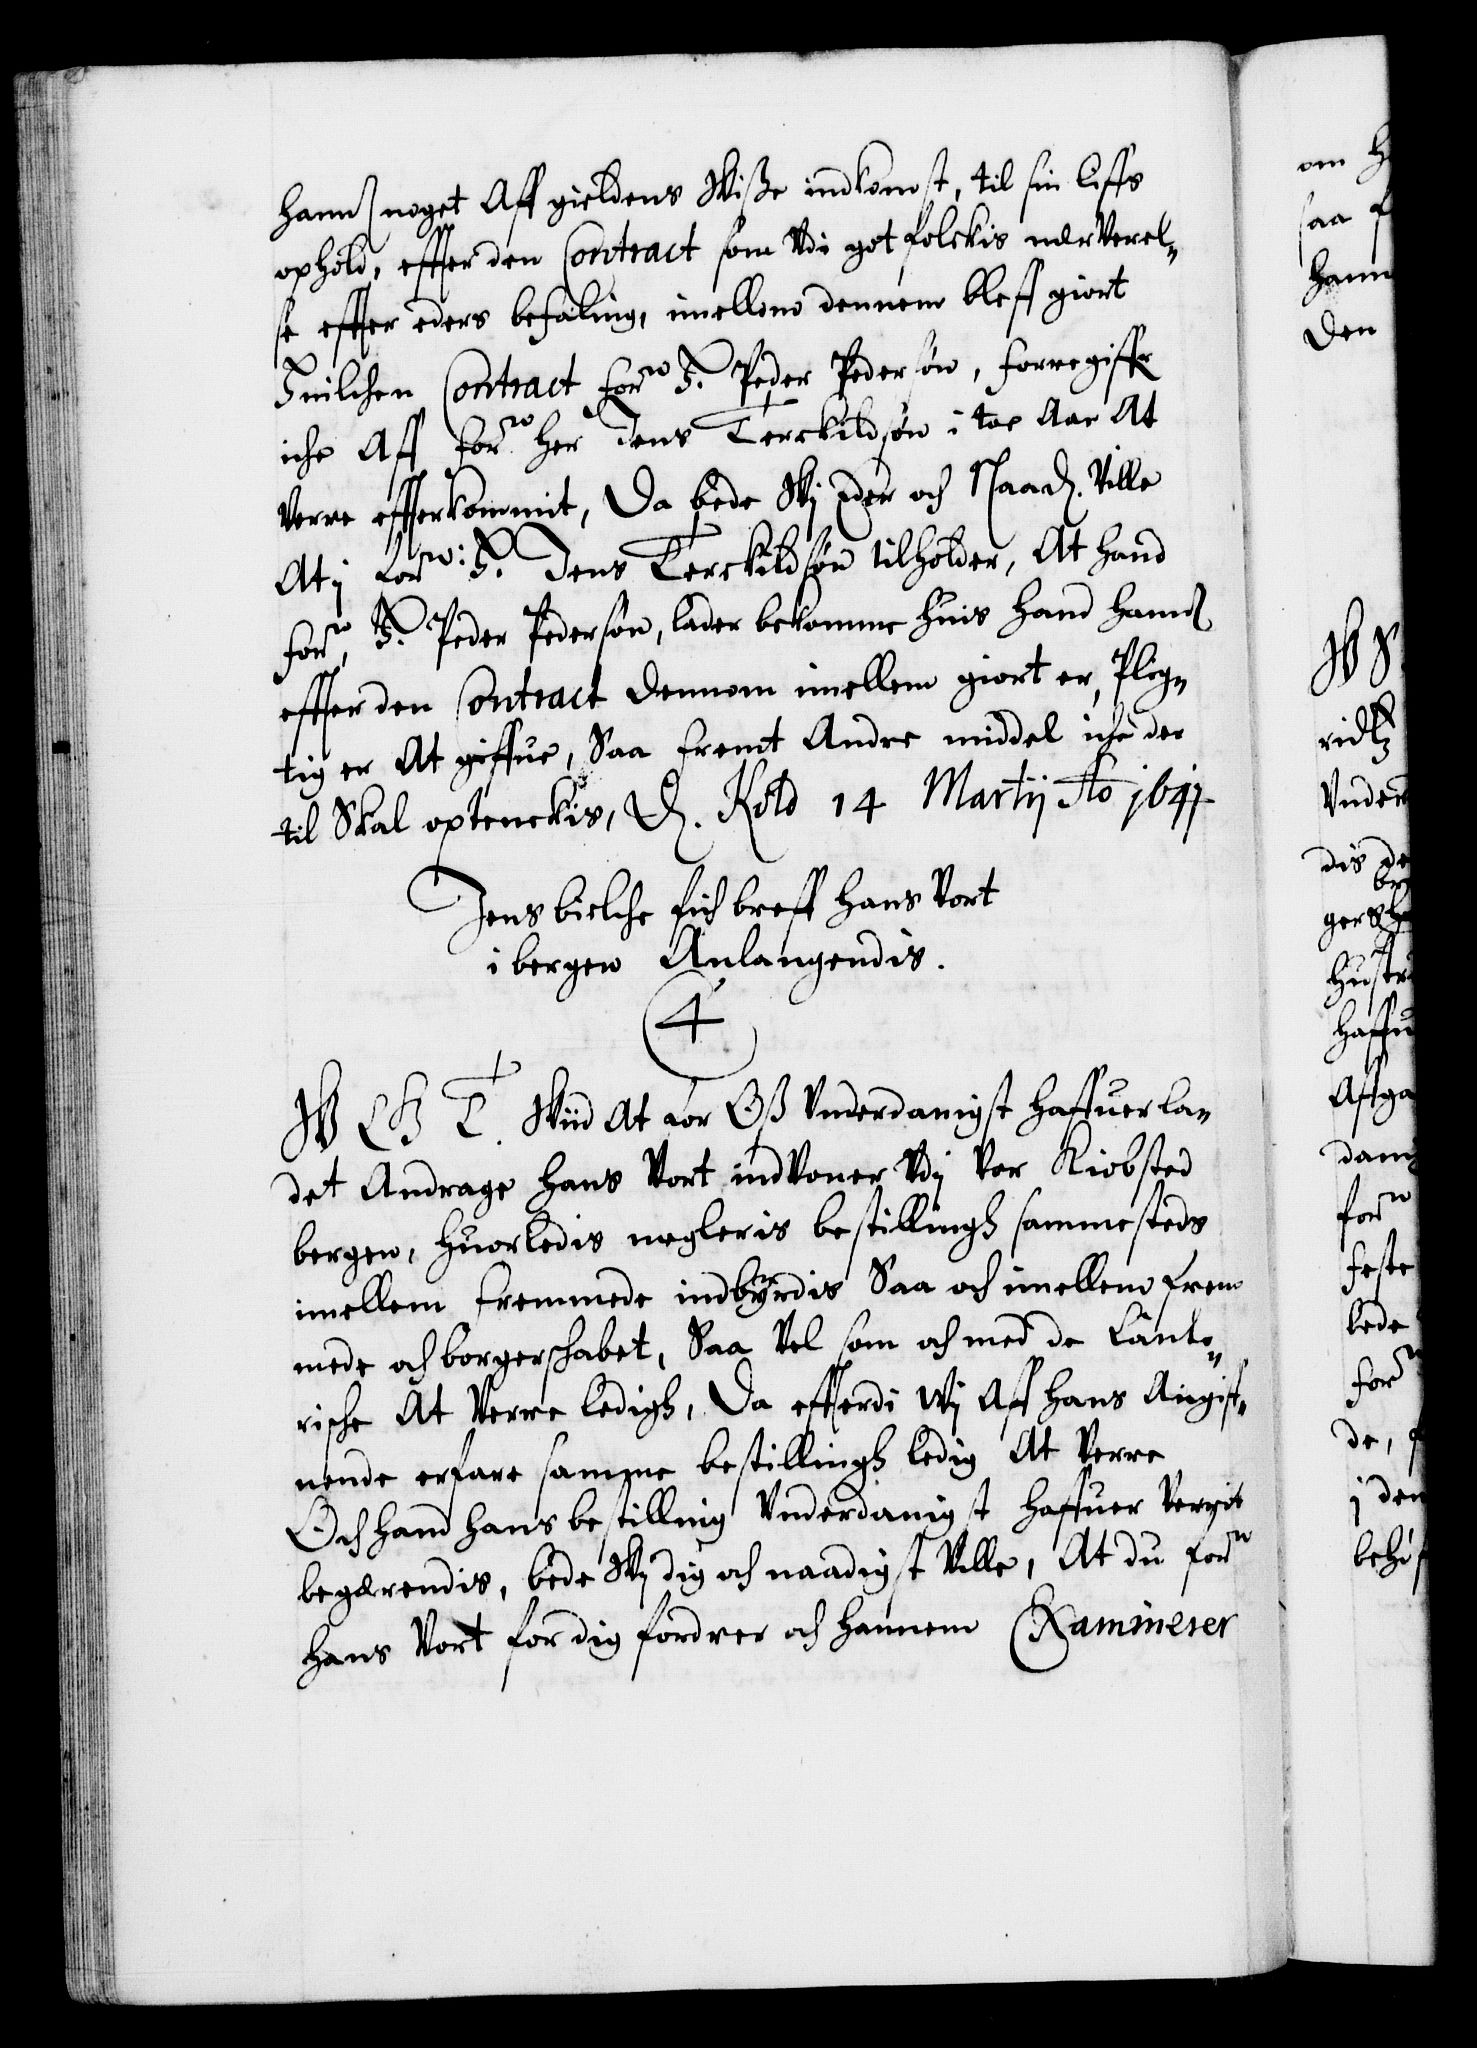 hannem noget Aff gieldens Wisse indkomst, til sin liffs
ophold, effter den Contract som Vdi got folckis nærverel„
se effter eders befaling, imellom dennem bleff giort
Huilchen Contract forne H. Peder Pedersøn, forregiffr
iche Aff forne her Jens Terckildsøn i toe Aar At
Verre effterkommit, Da bede Wj Eder och Naadl. Ville
At j forne: H. Jens Terckildsøn tilholder, At hand
forne, H. Peder Pedersøn, lader bekomme huis hand hannem
effter den Contract dennom imellem giort er, Plig„
tig er At giffue, Saa fremt Andre middel iche der
til Skal optenckis, D. Kold 14 Martij Ao 1641
Jens bielche fich breff Hans Vort
i bergen Anlangendis.
4
W C G T. Wiid At for Oß Vnderdanigst haffuer la„
det Andrage Hans Vort indVoner Vdj Vor Kiobsted
bergen, huorledis megleris bestillingh sammesteds
imellem fremmede indbyrdis Saa och imellem frem
mede och borgerschabet, Saa Vel som och med de Cånto„
rische At Verre ledigh, Da effterdi Wj Aff hans Angif„
nende erfare samme bestillingh ledig At Verre
Och hand hans bestilling Vnderdanigst haffuer Verrit
begærendis, bede Wj dig och naadigst Ville, At du forne
Hans Vort for dig fordrer och hannem Examinerer
om H
saa f
hann
Den
W S
Vnder
dis de
gersk
Hustr
haffu
Affga
dani
forne
feste
lede
forn
de, f
j den
behof